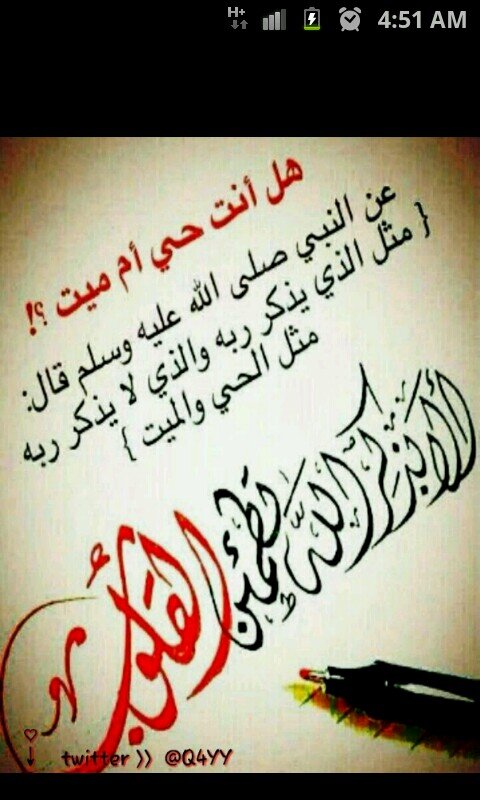 H+ 4:51 AM
هل أنت حي أم ميت ؟!
عن النبي صلى الله عليه وسلم قال:
{ مثل الذي يذكر ربه والذي لا يذكر ربه
مثل الحي والميت }
ألا بذكر الله تطمئن القلوب
twitter >> @Q4YY